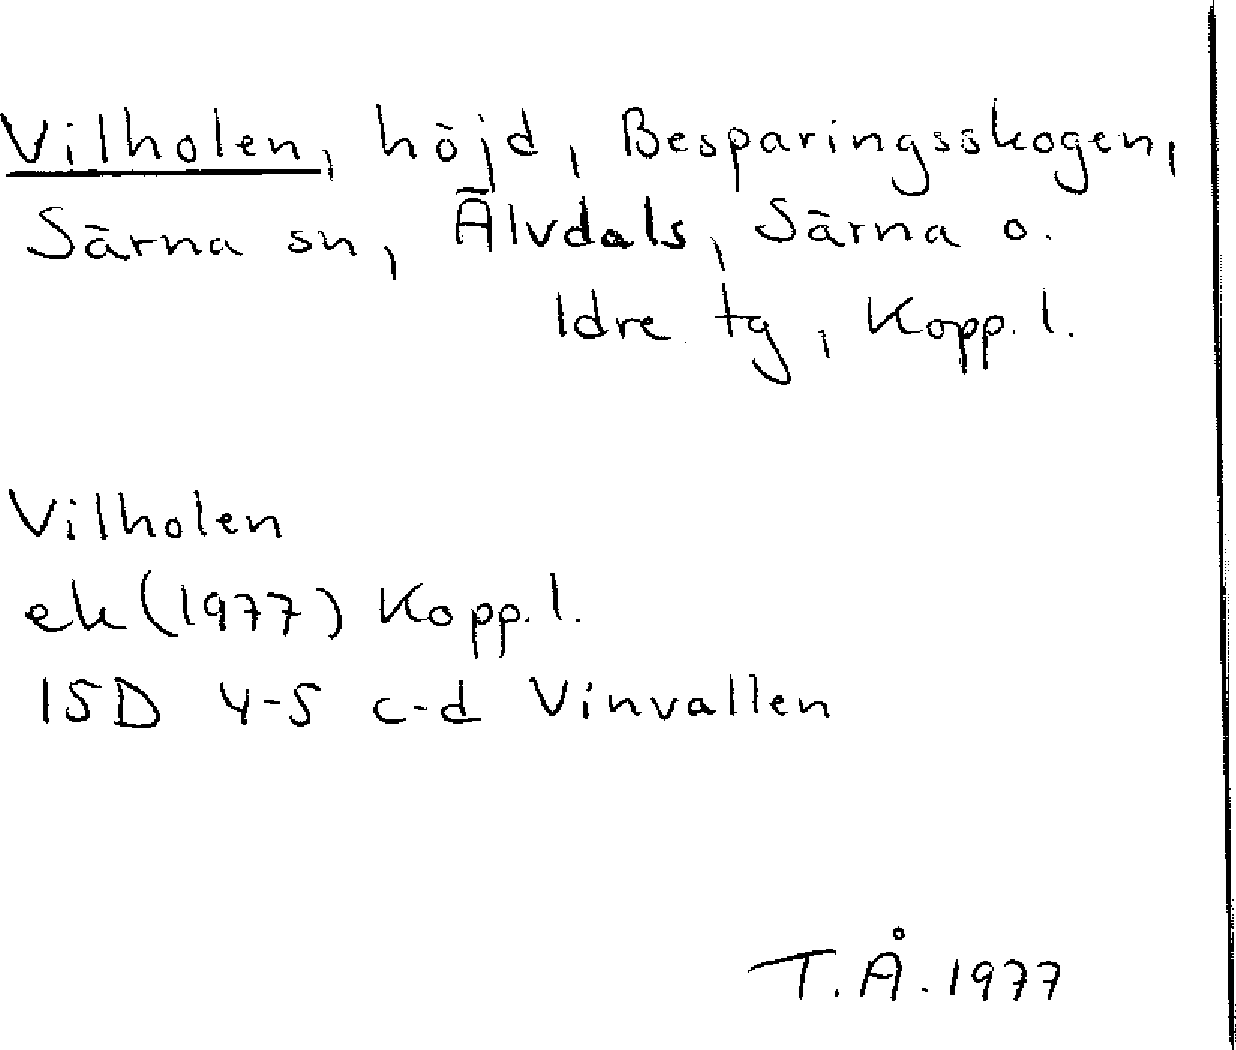 Vilholen, höjd, Besparingsskogen,
Särna sn, Älvdals, Särna o.
Idre tg, Kopp. l.
Vilholen
ek (1977) Kopp. l.
15D 4-5 c-d Vinvallen
T. Å. 1977